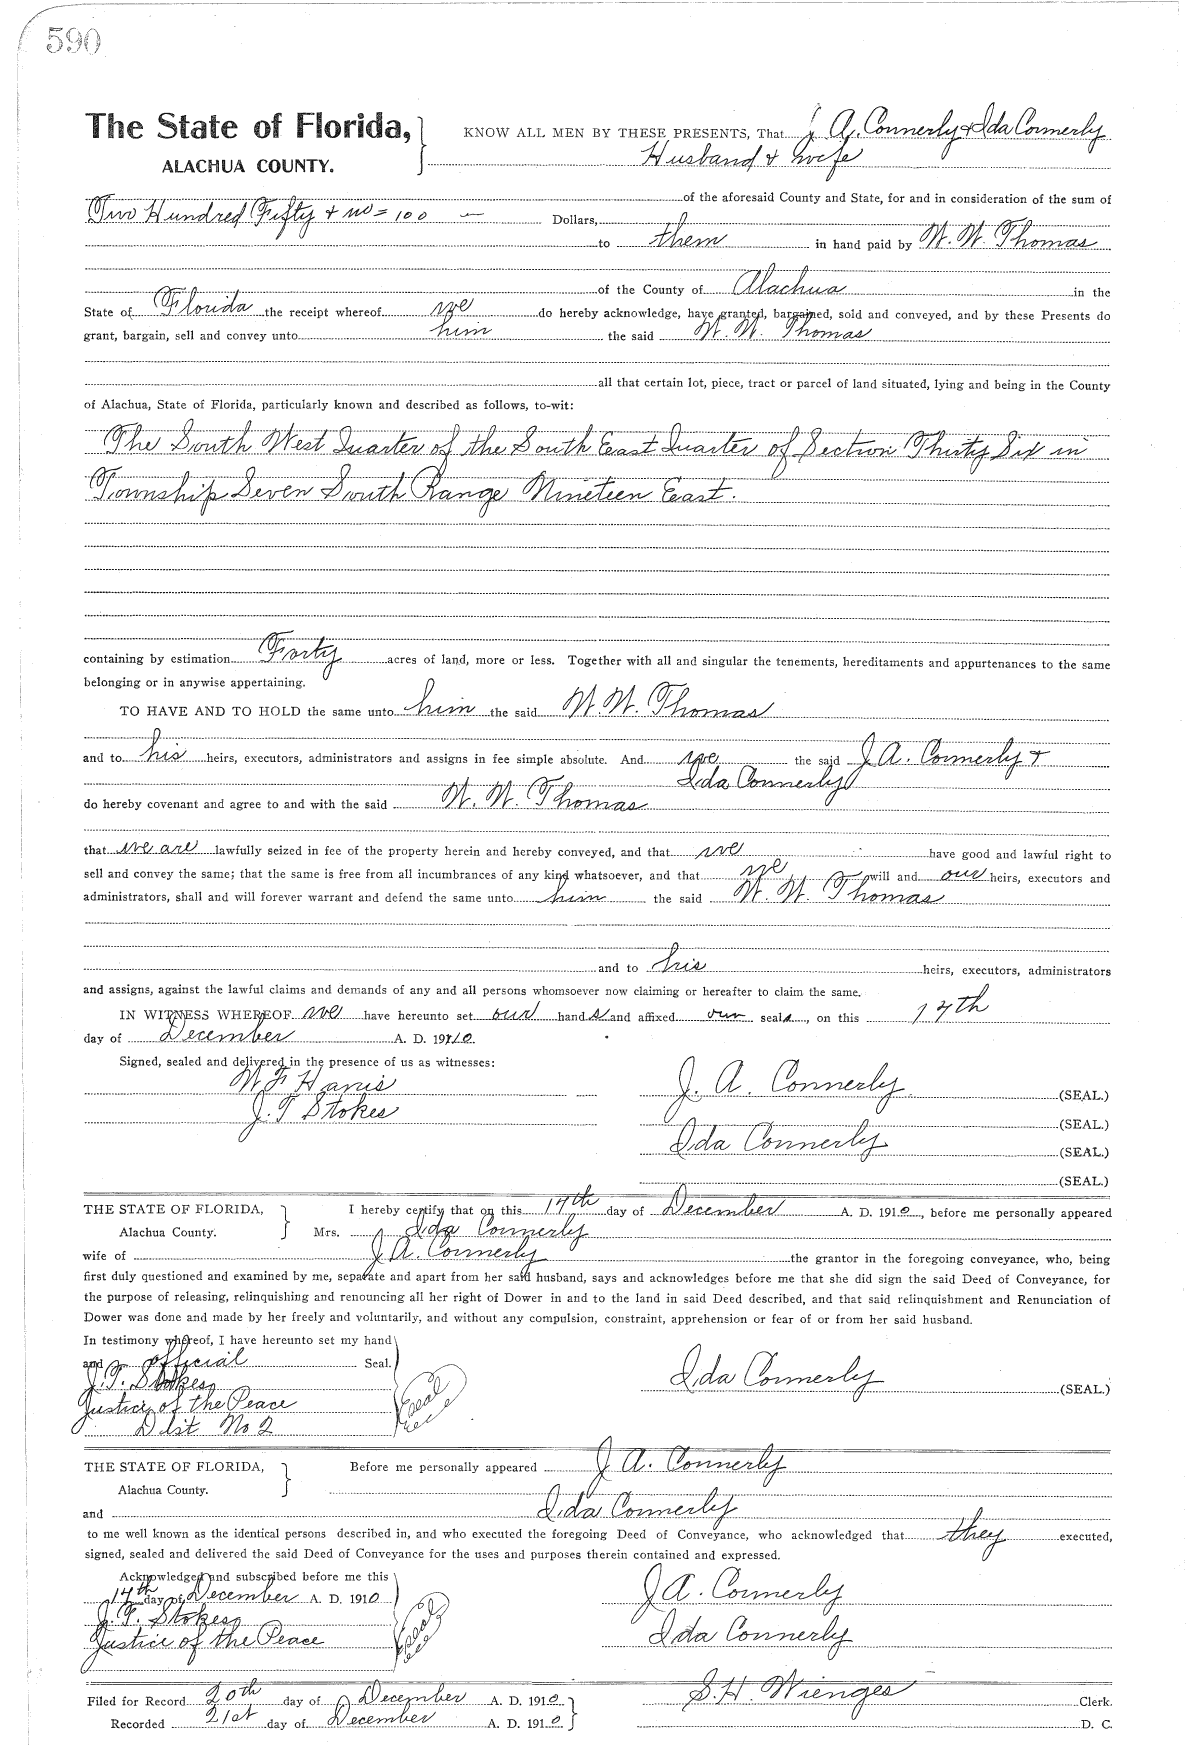 590
The State of Florida, KNOW ALL MEN BY THESE PRESENTS, That J. A. Connerly & Ida Connerly
ALACHUA COUNTY. Husband & wife
of the aforesaid County and State, for and in consideration of the sum of
Two Hundred Fifty & no=100 — Dollars,
to them in hand paid by W. W. Thomas
of the County of Alachua in the
State of Florida the receipt whereof we do hereby acknowledge, have granted, bargained, sold and conveyed, and by these Presents do
grant, bargain, sell and convey unto him the said W. W. Thomas
all that certain lot, piece, tract or parcel of land situated, lying and being in the County
of Alachua, State of Florida, particularly known and described as follows, to-wit:
The South West Quarter of the South East Quarter of Section Thirty Six in
Township Seven South Range Nineteen East.
containing by estimation Forty acres of land, more or less. Together with all and singular the tenements, hereditaments and appurtenances to the same
belonging or in anywise appertaining.
TO HAVE AND TO HOLD the same unto him the said W. W. Thomas
and to his heirs, executors, administrators and assigns in fee simple absolute. And we the said J A. Connerly &
Ida Connerly
do hereby covenant and agree to and with the said W. W. Thomas
that we are lawfully seized in fee of the property herein and hereby conveyed, and that we have good and lawful right to
sell and convey the same; that the same is free from all incumbrances of any kind whatsoever, and that we will and our heirs, executors and
administrators, shall and will forever warrant and defend the same unto him the said W. W. Thomas
and to his heirs, executors, administrators
and assigns, against the lawful claims and demands of any and all persons whomsoever now claiming or hereafter to claim the same.
IN WITNESS WHEREOF we have hereunto set our hands and affixed our seals, on this 14th
day of December A. D. 1910.
Signed, sealed and delivered in the presence of us as witnesses:
W F Hanis J. A. Connerly (SEAL.)
J. T Stokes (SEAL.)
Ida Connerly (SEAL.)
(SEAL.)
THE STATE OF FLORIDA, I hereby certify that on this 14th day of December A. D. 1910, before me personally appeared
Alachua County. Mrs. Ida Connerly
wife of J A. Connerly the grantor in the foregoing conveyance, who, being
first duly questioned and examined by me, separate and apart from her said husband, says and acknowledges before me that she did sign the said Deed of Conveyance, for
the purpose of releasing, relinquishing and renouncing all her right of Dower in and to the land in said Deed described, and that said relinquishment and Renunciation of
Dower was done and made by her freely and voluntarily, and without any compulsion, constraint, apprehension or fear of or from her said husband.
In testimony whereof, I have hereunto set my hand
and official Seal.
J. T. Stokes Ida Connerly (SEAL.)
Justice of the Peace Seal
Dist No 2
THE STATE OF FLORIDA, Before me personally appeared J A. Connerly
Alachua County.
and Ida Connerly
to me well known as the identical persons described in, and who executed the foregoing Deed of Conveyance, who acknowledged that they executed,
signed, sealed and delivered the said Deed of Conveyance for the uses and purposes therein contained and expressed.
Acknowledged and subscribed before me this
14th day of December A. D. 1910 J A. Connerly
J. T. Stokes Seal
Justice of the Peace Ida Connerly
Filed for Record 20th day of December A. D. 1910 S. H. Wienges Clerk.
Recorded 21st day of December A. D. 1910 D. C.